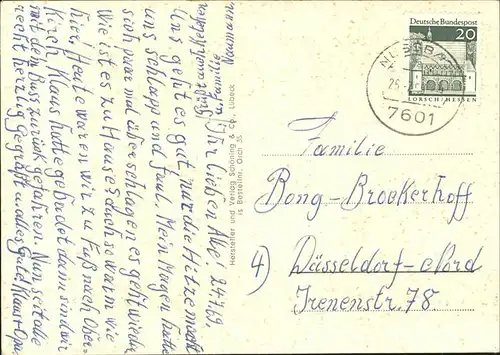 Ihr Lieben Alle! 24.7.69.
Uns geht es gut, nur die Hitze macht
uns schlapp und faul. Mein Magen hatte
sich paar mal überschlagen es geht wieder
Wie ist es zu Hause? auch so warm wie
hier. Heute waren wir zu Fuß nach Ober-
Kirch, Klaus hatte gebadet dann sind wir
mit dem Bus zurück gefahren. Nun seit alle
recht herzlich gegrüßt u. alles Gute Klaus + Opa
Hersteller und Verlag Schöning & Co., Lübeck
Deutsche Bundespost
20
LORSCH/HESSEN
NUSSBA
25.
7601
Familie
Bong-Brockerhoff
4) Düsseldorf-Nord
Irenenstr. 78